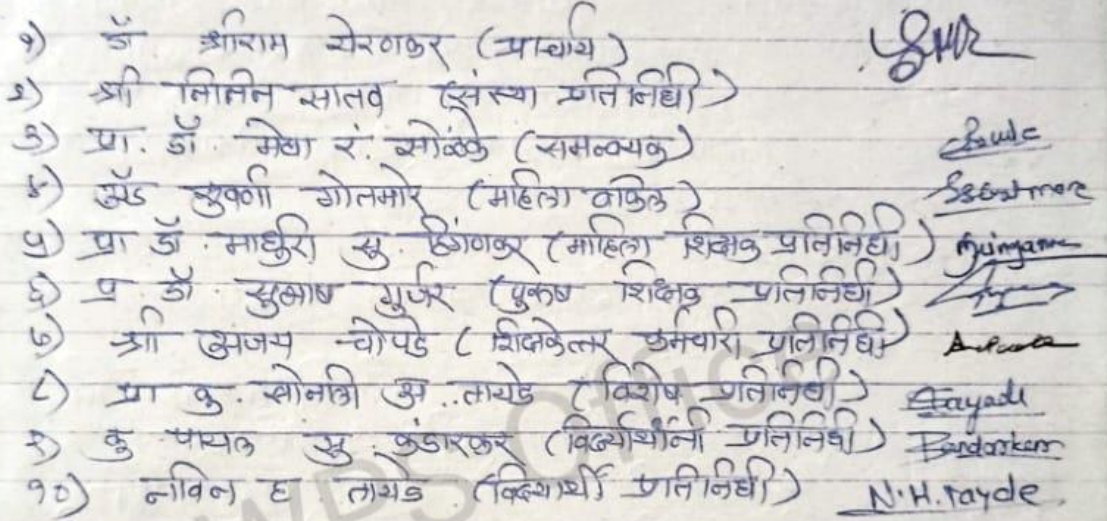 १) डॉ. श्रीराम येरणकर (प्राचार्य)
२) श्री नितिन सातव (संस्था प्रतिनिधी)
३) प्रा. डॉ. मेघा रं. सोळंके (समन्वयक)
४) अॅड सुवर्णा गोतमारे (महिला वकिल)
५) प्रा डॉ. माधुरी सु. हिंगणकर (महिला शिक्षक प्रतिनिधी)
६) प्र. डॉ. सुभाष गुर्जर (पुरूष शिक्षक प्रतिनिधी)
७) श्री अजय चोपडे (शिक्षकेत्तर कर्मचारी प्रतिनिधी)
८) प्रा कु. सोनाली अ. तायडे (विशेष प्रतिनिधी) Tayade
९) कु पायल सु. कुंडारकर (विद्यार्थीनी प्रतिनिधी)
१०) नविन ह तायडे (विद्यार्थी प्रतिनिधी) N.H.Tayde.
WPS Office